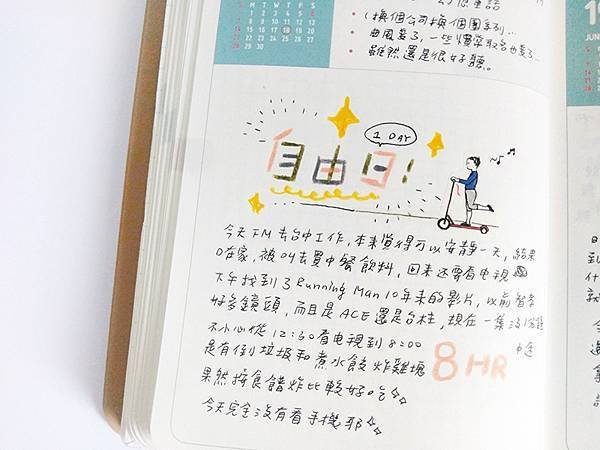 (換個公司換個團系列...
曲風變了，一些慣常取名也變了...
雖然還是很好聽。
JUNE
1 DAY
自由日!
今天FM去台中工作，本來覺得可以安靜一天，結果
O在家，被叫去買中餐飲料，回來還要看电視
下午找到了Running Man 10年來的影片，以前智孝
好多鏡頭，而且是ACE還是台柱，現在一集3分鐘
不小心從12:30看电視到8:00 中途
是有倒垃圾和煮水餃炸雞塊 8HR
果然按食譜炸比較好吃
今天完全沒有看手機耶